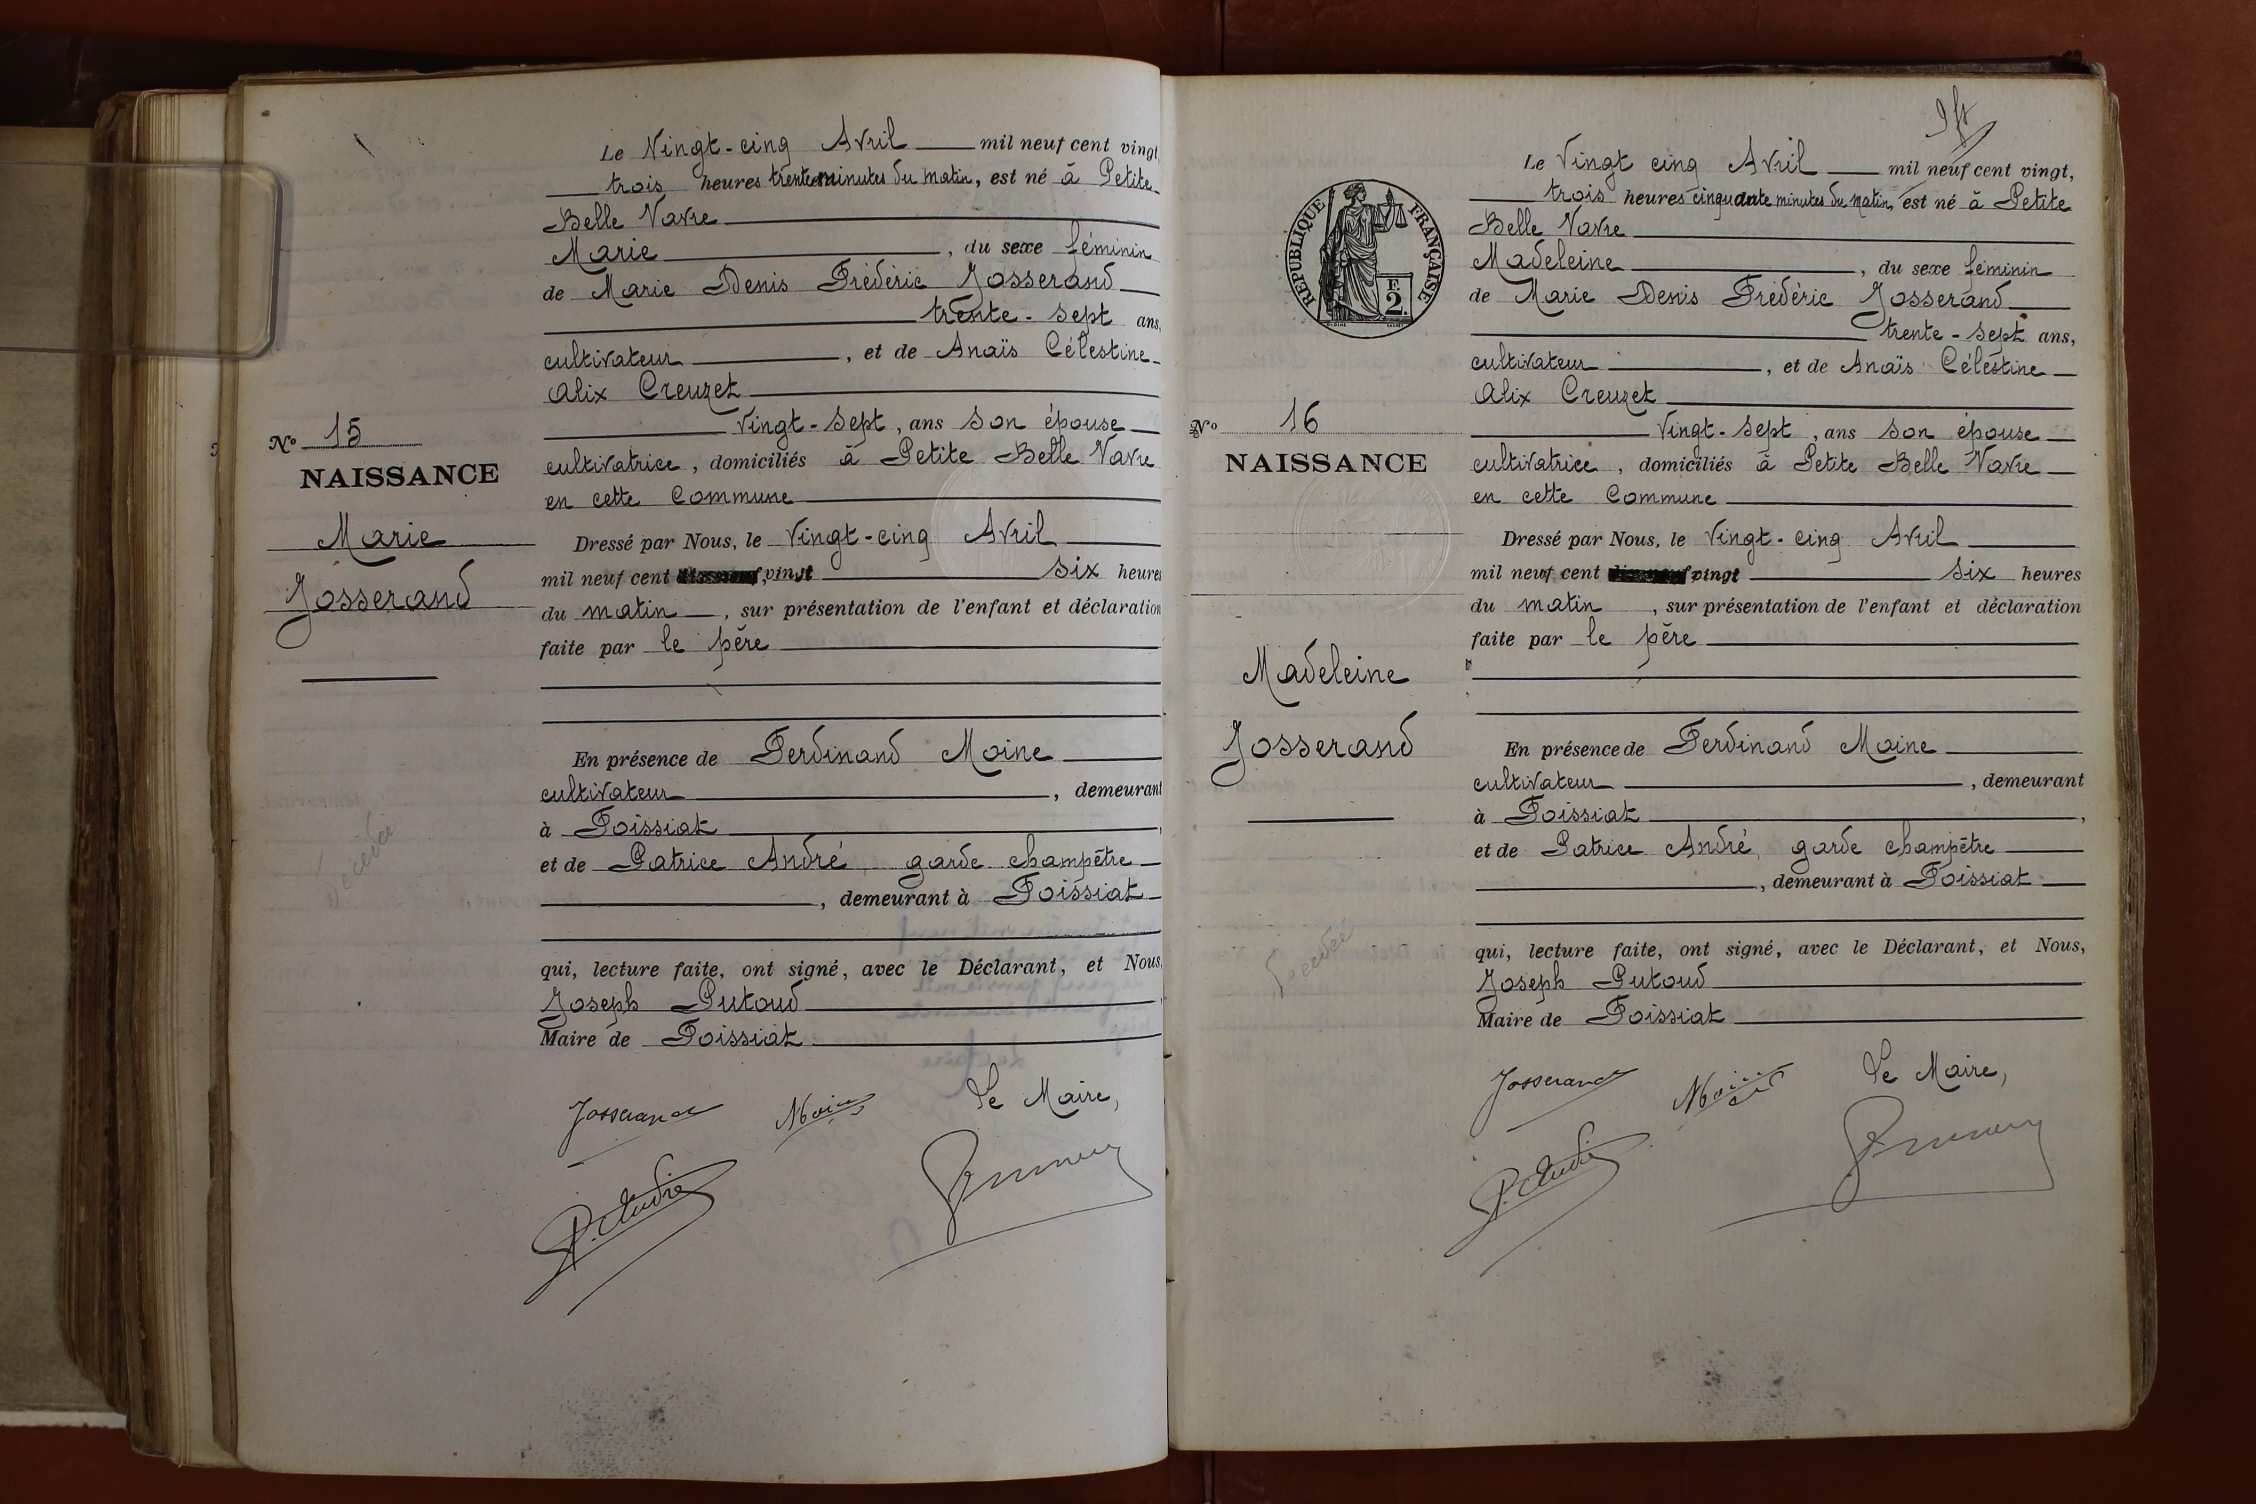 Le Vingt-cinq Avril mil neuf cent vingt,
trois heures trente minutes du matin, est né à Petite
Belle Vavre
Marie, du sexe féminin
de Marie Denis Frédéric Josserand
trente-sept ans,
cultivateur, et de Anaïs Célestine
Alix Creuzet
Vingt-sept, ans son épouse
cultivatrice, domiciliés à Petite Belle Vavre
en cette Commune
N° 15
NAISSANCE
Marie
Josserand
Décédée
Dressé par Nous, le Vingt-cinq Avril
mil neuf cent vingt six heures
du matin, sur présentation de l'enfant et déclaration
faite par le père
En présence de Ferdinand Moine
cultivateur, demeurant
à Foissiat
et de Patrice André, garde champêtre
, demeurant à Foissiat
qui, lecture faite, ont signé, avec le Déclarant, et Nous,
Joseph Putoud
Maire de Foissiat
Josserand Moine Le Maire,
P. André
Le Vingt cinq Avril mil neuf cent vingt,
trois heures cinquante minutes du matin, est né à Petite
Belle Vavre
Madeleine, du sexe féminin
de Marie Denis Frédéric Josserand
trente-sept ans,
cultivateur, et de Anaïs Célestine
Alix Creuzet
Vingt-sept, ans son épouse
cultivatrice, domiciliés à Petite Belle Vavre
en cette Commune
RÉPUBLIQUE FRANÇAISE
F.
2.
N° 16
NAISSANCE
Madeleine
Josserand
Décédée
Dressé par Nous, le Vingt-cinq Avril
mil neuf cent vingt six heures
du matin, sur présentation de l'enfant et déclaration
faite par le père
En présence de Ferdinand Moine
cultivateur, demeurant
à Foissiat,
et de Patrice André, garde champêtre
, demeurant à Foissiat
qui, lecture faite, ont signé, avec le Déclarant, et Nous,
Joseph Putoud
Maire de Foissiat
Josserand Moine Le Maire,
P. André